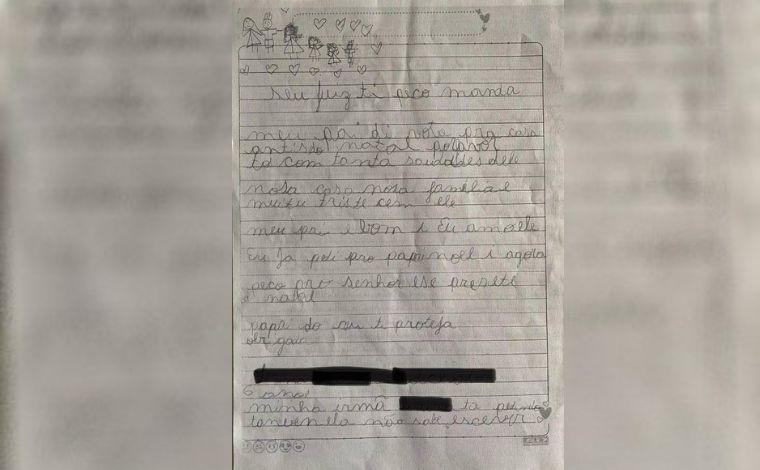 seu juiz ti peco manda
meu pai di vota pra casa
antis do natal porfavor
to com tanta saudades dele
nosa casa nosa familia e
muitu triste cem ele
meu pai i bom i Eu amo ele
Eu Ja pedi pro papai noel i agora
peco pro senhor ese presete
d natal
papai do ceu ti proteja
obr gada
6 anos
minha irmã ta pedindo
tanven ela não sabe escever